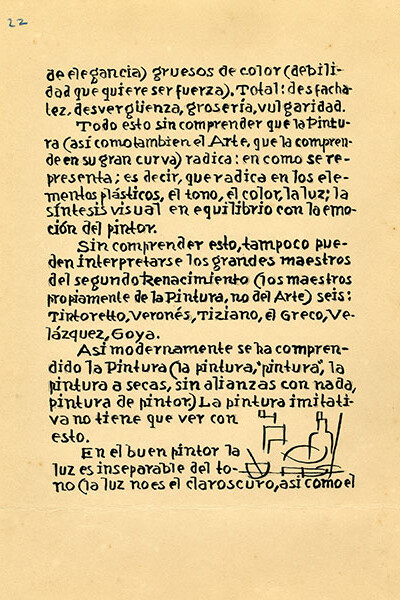 22
de elegancia) gruesos de color (debili-
dad que quiere ser fuerza). Total: desfacha-
tez, desvergüenza, grosería, vulgaridad.
Todo esto sin comprender que la Pintu-
ra (asi como tambien el Arte, que la compren-
de en su gran curva) radica: en como se re-
presenta; es decir, que radica en los ele-
mentos plásticos, el tono, el color, la luz; la
síntesis visual en equilibrio con la emo-
ción del pintor.
Sin comprender esto, tampoco pue-
den interpretarse los grandes maestros
del segundo Renacimiento (los maestros
propiamente de la Pintura, no del Arte) seis:
Tintoretto, Veronés, Tiziano, el Greco, Ve-
lázquez, Goya.
Asi modernamente se ha compren-
dido la Pintura (la pintura, "pintura", la
pintura a secas, sin alianzas con nada,
pintura de pintor.) La pintura imitati-
va no tiene que ver con
esto.
En el buen pintor la
luz es inseparable del to-
no (la luz no es el claroscuro, asi como el